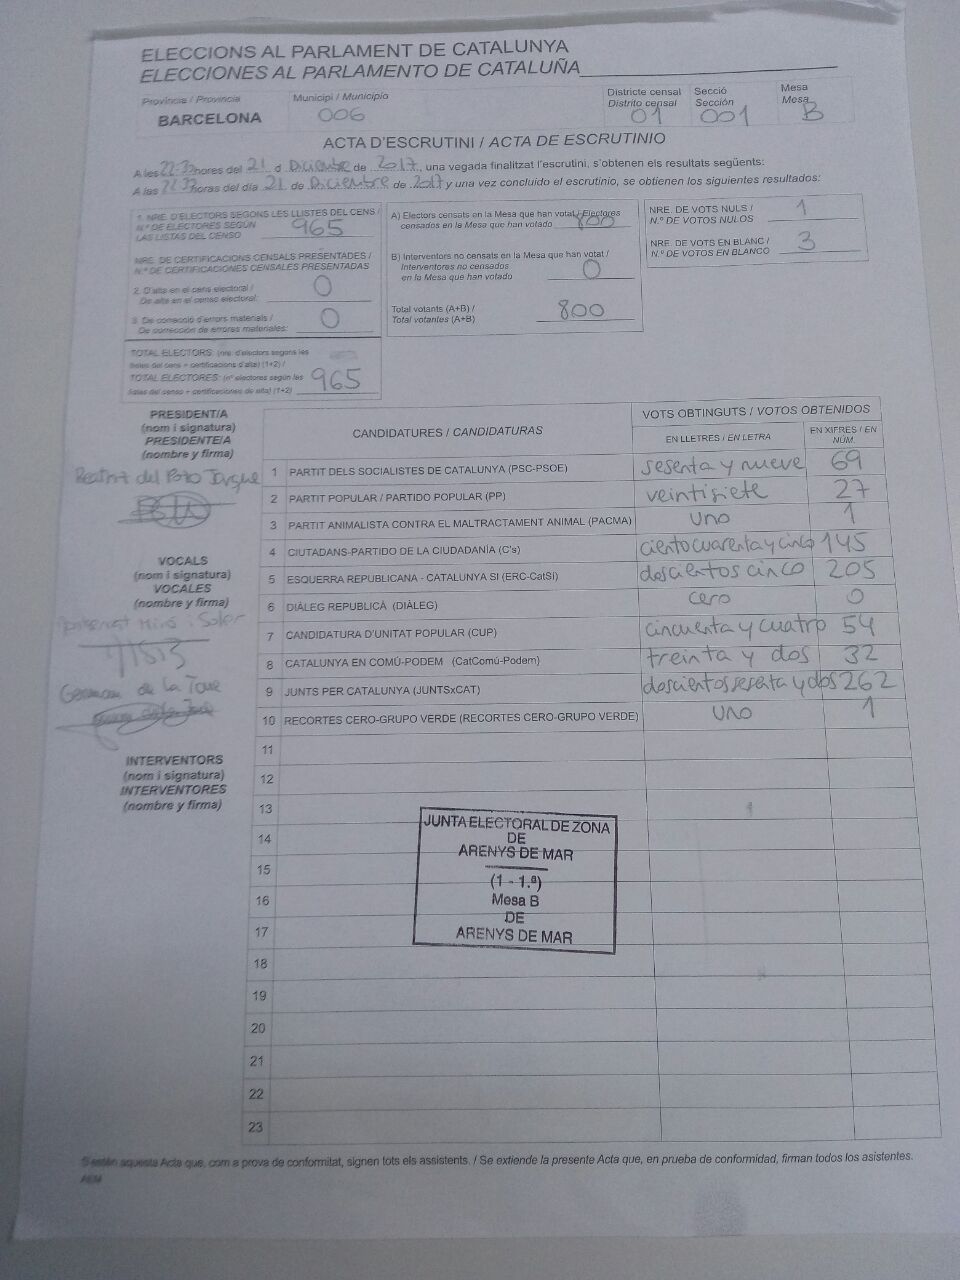 ELECCIONS AL PARLAMENT DE CATALUNYA
ELECCIONES AL PARLAMENTO DE CATALUÑA
Província / Provincia
BARCELONA
Municipi / Municipio
006
Districte censal
Distrito censal
01
Secció
Sección
001
Mesa
Mesa
B
ACTA D'ESCRUTINI / ACTA DE ESCRUTINIO
A les 22:30 hores del 21 d Diciembre de 2017, una vegada finalitzat l'escrutini, s'obtenen els resultats següents:
A las 22:30 horas del día 21 de Diciembre de 2017 y una vez concluido el escrutinio, se obtienen los siguientes resultados:
1. NRE. D'ELECTORS SEGONS LES LLISTES DEL CENS /
N.º DE ELECTORES SEGÚN
LAS LISTAS DEL CENSO 965
NRE. DE CERTIFICACIONS CENSALS PRESENTADES /
N.º DE CERTIFICACIONES CENSALES PRESENTADAS
2. D'alta en el cens electoral /
De alta en el censo electoral: 0
3. De correcció d'errors materials /
De corrección de errores materiales: 0
TOTAL ELECTORS: (nre. d'electors segons les
llistes del cens + certificacions d'alta) (1+2) /
TOTAL ELECTORES: (nº electores según las
listas del censo + certificaciones de alta) (1+2) 965
A) Electors censats en la Mesa que han votat / Electores
censados en la Mesa que han votado 800
B) Interventors no censats en la Mesa que han votat /
Interventores no censados
en la Mesa que han votado 0
Total votants (A+B) /
Total votantes (A+B) 800
NRE. DE VOTS NULS /
N.º DE VOTOS NULOS 1
NRE. DE VOTS EN BLANC /
N.º DE VOTOS EN BLANCO 3
PRESIDENT/A
(nom i signatura)
PRESIDENTE/A
(nombre y firma)
Beatriz del Pozo
VOCALS
(nom i signatura)
VOCALES
(nombre y firma)
Miró i Soler
German de la Torre
INTERVENTORS
(nom i signatura)
INTERVENTORES
(nombre y firma)
CANDIDATURES / CANDIDATURAS
VOTS OBTINGUTS / VOTOS OBTENIDOS
EN LLETRES / EN LETRA
EN XIFRES / EN NÚM.
1 PARTIT DELS SOCIALISTES DE CATALUNYA (PSC-PSOE) sesenta y nueve 69
2 PARTIT POPULAR / PARTIDO POPULAR (PP) veintisiete 27
3 PARTIT ANIMALISTA CONTRA EL MALTRACTAMENT ANIMAL (PACMA) uno 1
4 CIUTADANS-PARTIDO DE LA CIUDADANÍA (C's) ciento cuarenta y cinco 145
5 ESQUERRA REPUBLICANA - CATALUNYA SI (ERC-CatSí) doscientos cinco 205
6 DIÀLEG REPUBLICÀ (DIÀLEG) cero 0
7 CANDIDATURA D'UNITAT POPULAR (CUP) cincuenta y cuatro 54
8 CATALUNYA EN COMÚ-PODEM (CatComú-Podem) treinta y dos 32
9 JUNTS PER CATALUNYA (JUNTSxCAT) doscientos sesenta y dos 262
10 RECORTES CERO-GRUPO VERDE (RECORTES CERO-GRUPO VERDE) uno 1
11
12
13
14
15
16
17
18
19
20
21
22
23
JUNTA ELECTORAL DE ZONA
DE
ARENYS DE MAR
(1 - 1.ª)
Mesa B
DE
ARENYS DE MAR
S'estén aquesta Acta que, com a prova de conformitat, signen tots els assistents. / Se extiende la presente Acta que, en prueba de conformidad, firman todos los asistentes.